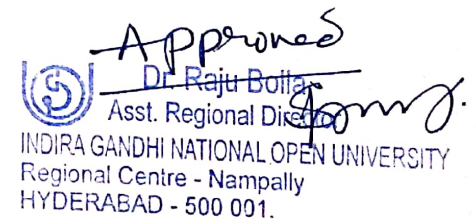 Approved
Dr. Raju Bolla
Asst. Regional Director
INDIRA GANDHI NATIONAL OPEN UNIVERSITY
Regional Centre - Nampally
HYDERABAD - 500 001.